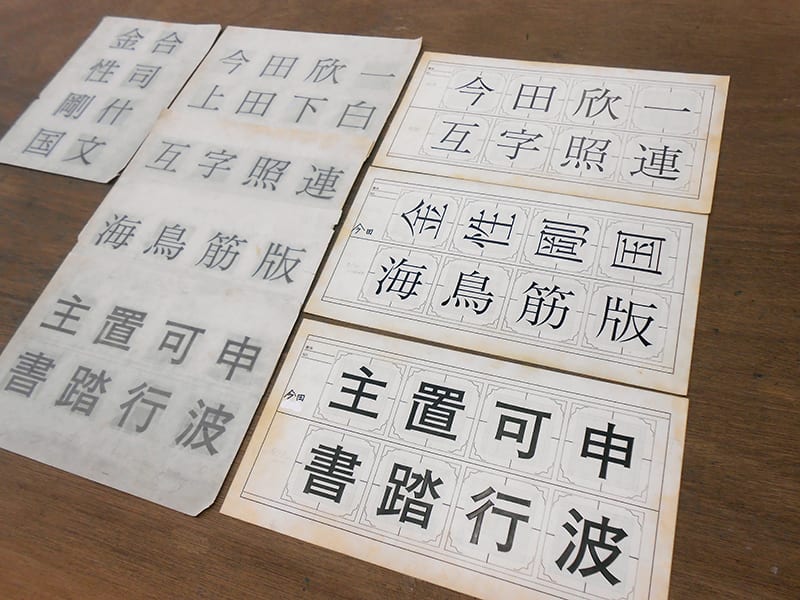 金合
性司
剛什
国文
今田欣一
上田下白
互字照連
海鳥筋版
主置可申
書踏行波
今田欣一
互字照連
今田
金性剛国
海鳥筋版
今田
主置可申
書踏行波